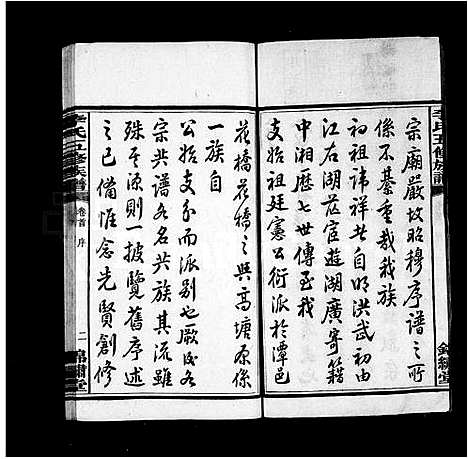 宗廟嚴故昭穆序譜之所
係不綦重哉我族
初祖諱祥自明洪武初由
江右湖茫宦遊湖廣寄籍
中湘歷七世傳至我
支始祖廷憲公衍派於潭邑
花橋花橋之與高塘原係
一族自
公始支分而派別也厥後各
宗共譜各名共族其流雖
殊其源則一披覽舊序述
之已備惟念先賢創修
李氏五修族譜
卷首 序
二
錦繡堂
李氏五修族譜
錦繡堂